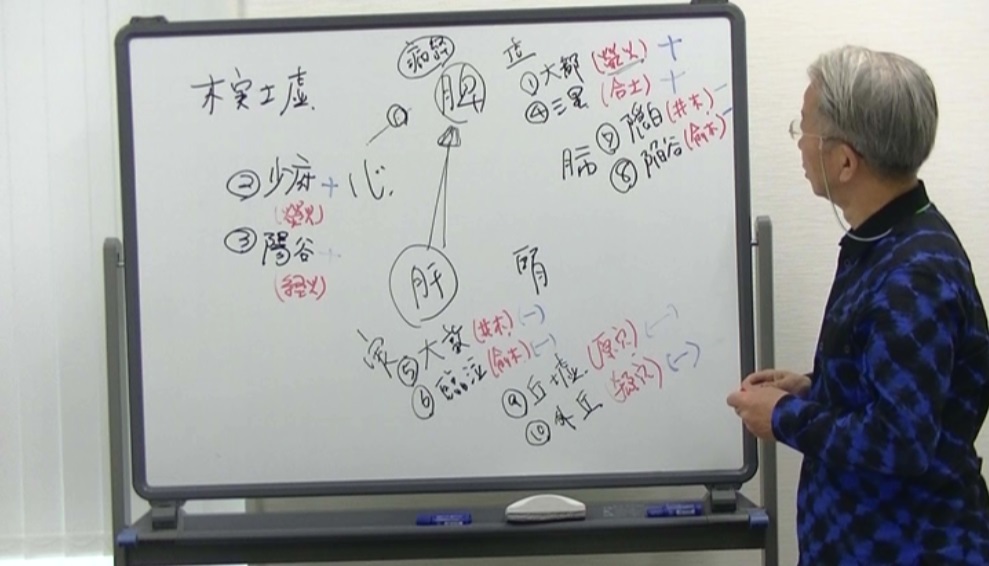 木実土虚
病証
脾
虚
①大都(滎火)+
④三里(合土)+
肺
⑦隠白(井木)-
⑧陥谷(兪木)-
心
②少府+
(滎火)
③陽谷+
(経火)
肝
実
⑤大敦(井木)(-)
⑥臨泣(兪木)(-)
⑨丘墟(原穴)(-)
⑩外丘(郄穴)(-)